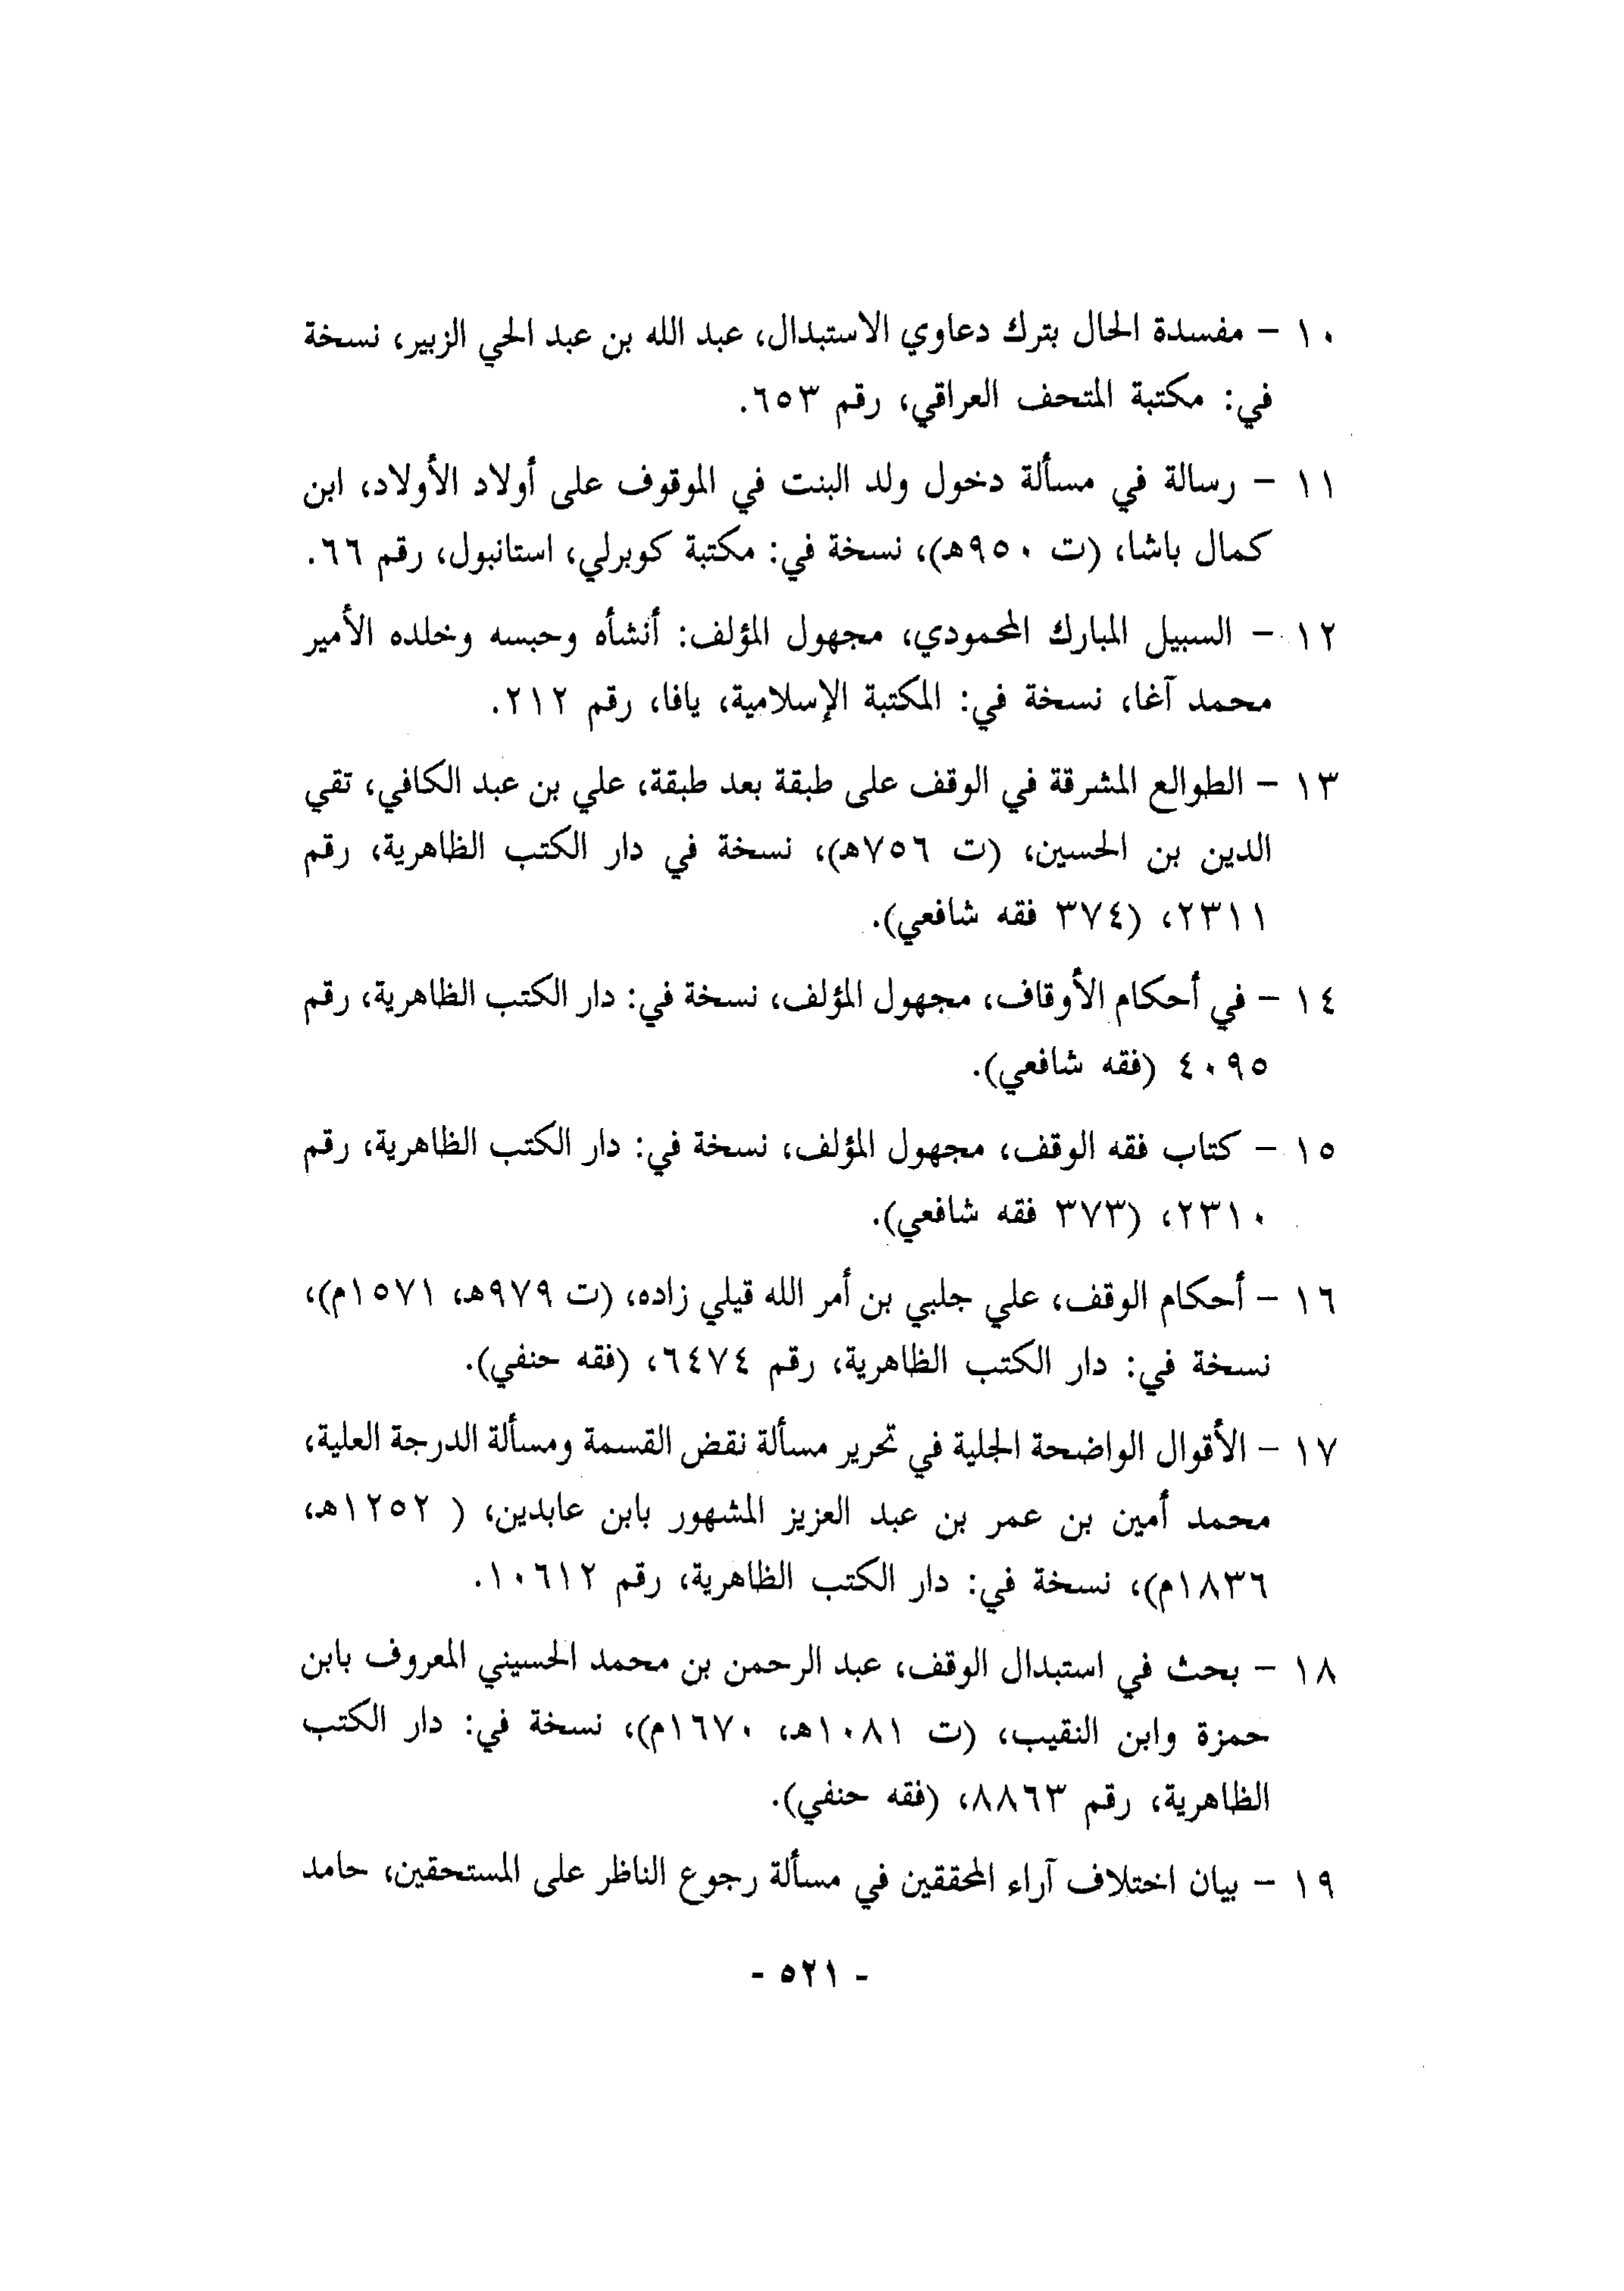 ١٠ - مفسدة الحال بترك دعاوي الاستبدال، عبد الله بن عبد الحي الزبير، نسخة
في: مكتبة المتحف العراقي، رقم ٦٥٣.
١١ - رسالة في مسألة دخول ولد البنت في الموقوف على أولاد الأولاد، ابن
كمال باشا، (ت ٩٥٠هـ)، نسخة في: مكتبة كوبرلي، استانبول، رقم ٦٦.
١٢ - السبيل المبارك المحمودي، مجهول المؤلف: أنشأه وحبسه وخلده الأمير
محمد آغا، نسخة في: المكتبة الإسلامية، يافا، رقم ٢١٢.
١٣ - الطوالع المشرقة في الوقف على طبقة بعد طبقة، علي بن عبد الكافي، تقي
الدين بن الحسين، (ت ٧٥٦هـ)، نسخة في دار الكتب الظاهرية، رقم
٢٣١١، (٣٧٤ فقه شافعي).
١٤ - في أحكام الأوقاف، مجهول المؤلف، نسخة في: دار الكتب الظاهرية، رقم
٤٠٩٥ (فقه شافعي).
١٥ - كتاب فقه الوقف، مجهول المؤلف، نسخة في: دار الكتب الظاهرية، رقم
٢٣١٠، (٣٧٣ فقه شافعي).
١٦ - أحكام الوقف، علي جلبي بن أمر الله قيلي زاده، (ت ٩٧٩هـ، ١٥٧١م)،
نسخة في: دار الكتب الظاهرية، رقم ٦٤٧٤، (فقه حنفي).
١٧ - الأقوال الواضحة الجلية في تحرير مسألة نقض القسمة ومسألة الدرجة العلية،
محمد أمين بن عمر بن عبد العزيز المشهور بابن عابدين، ( ١٢٥٢هـ،
١٨٣٦م)، نسخة في: دار الكتب الظاهرية، رقم ١٠٦١٢.
١٨ - بحث في استبدال الوقف، عبد الرحمن بن محمد الحسيني المعروف بابن
حمزة وابن النقيب، (ت ١٠٨١هـ، ١٦٧٠م)، نسخة في: دار الكتب
الظاهرية، رقم ٨٨٦٣، (فقه حنفي).
١٩ - بيان اختلاف آراء المحققين في مسألة رجوع الناظر على المستحقين، حامد
- ٥٢١ -